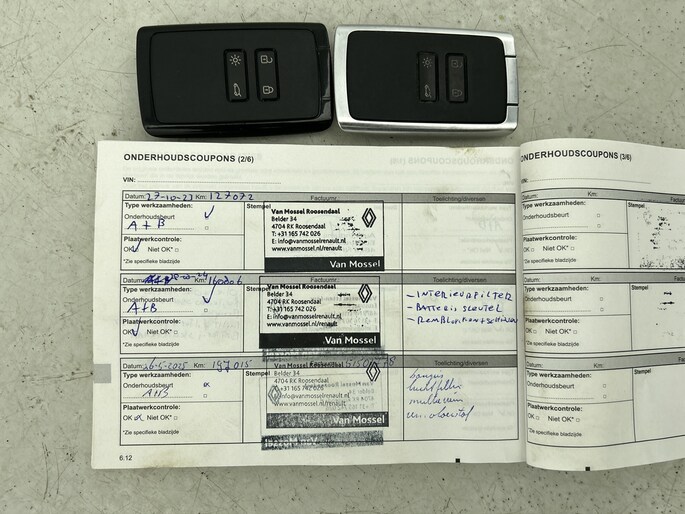 ONDERHOUDSCOUPONS (2/6)
VIN:
Datum: 27-10-23 Km: 127072 Factuurnr.
Toelichting/diversen
Type werkzaamheden:
Stempel
Onderhoudsbeurt
A + B
Plaatwerkcontrole:
OK Niet OK*
*Zie specifieke bladzijde
Van Mossel Roosendaal
Belder 34
4704 RK Roosendaal
T: +31 165 742 026
E: info@vanmosselrenault.nl
www.vanmossel.nl/renault
Van Mossel
Datum: Km: Factuurnr.
Toelichting/diversen
Type werkzaamheden:
Stempel
Onderhoudsbeurt
A+B
Plaatwerkcontrole:
OK Niet OK*
*Zie specifieke bladzijde
Van Mossel Roosendaal
Belder 34
4704 RK Roosendaal
T: +31 165 742 026
E: info@vanmosselrenault.nl
www.vanmossel.nl/renault
Van Mossel
- INTERIEURFILTER
- BATTERIJ SLEUTEL
Datum: 26-5-2025 Km: 157015
Toelichting/diversen
Type werkzaamheden:
Stempel
Onderhoudsbeurt
Plaatwerkcontrole:
OK Niet OK*
*Zie specifieke bladzijde
Belder 34
4704 RK Roosendaal
+31 165 742 026
info@vanmosselrenault.nl
www.vanmossel.nl/renault
Van Mossel
6.12
ONDERHOUDSCOUPONS (3/6)
VIN:
Datum: Km:
Type werkzaamheden:
Stempel
Onderhoudsbeurt
Plaatwerkcontrole:
OK Niet OK*
*Zie specifieke bladzijde
Datum: Km:
Type werkzaamheden:
Stempel
Onderhoudsbeurt
Plaatwerkcontrole:
OK Niet OK*
*Zie specifieke bladzijde
Datum: Km:
Type werkzaamheden:
Stempel
Onderhoudsbeurt
Plaatwerkcontrole:
OK Niet OK*
*Zie specifieke bladzijde